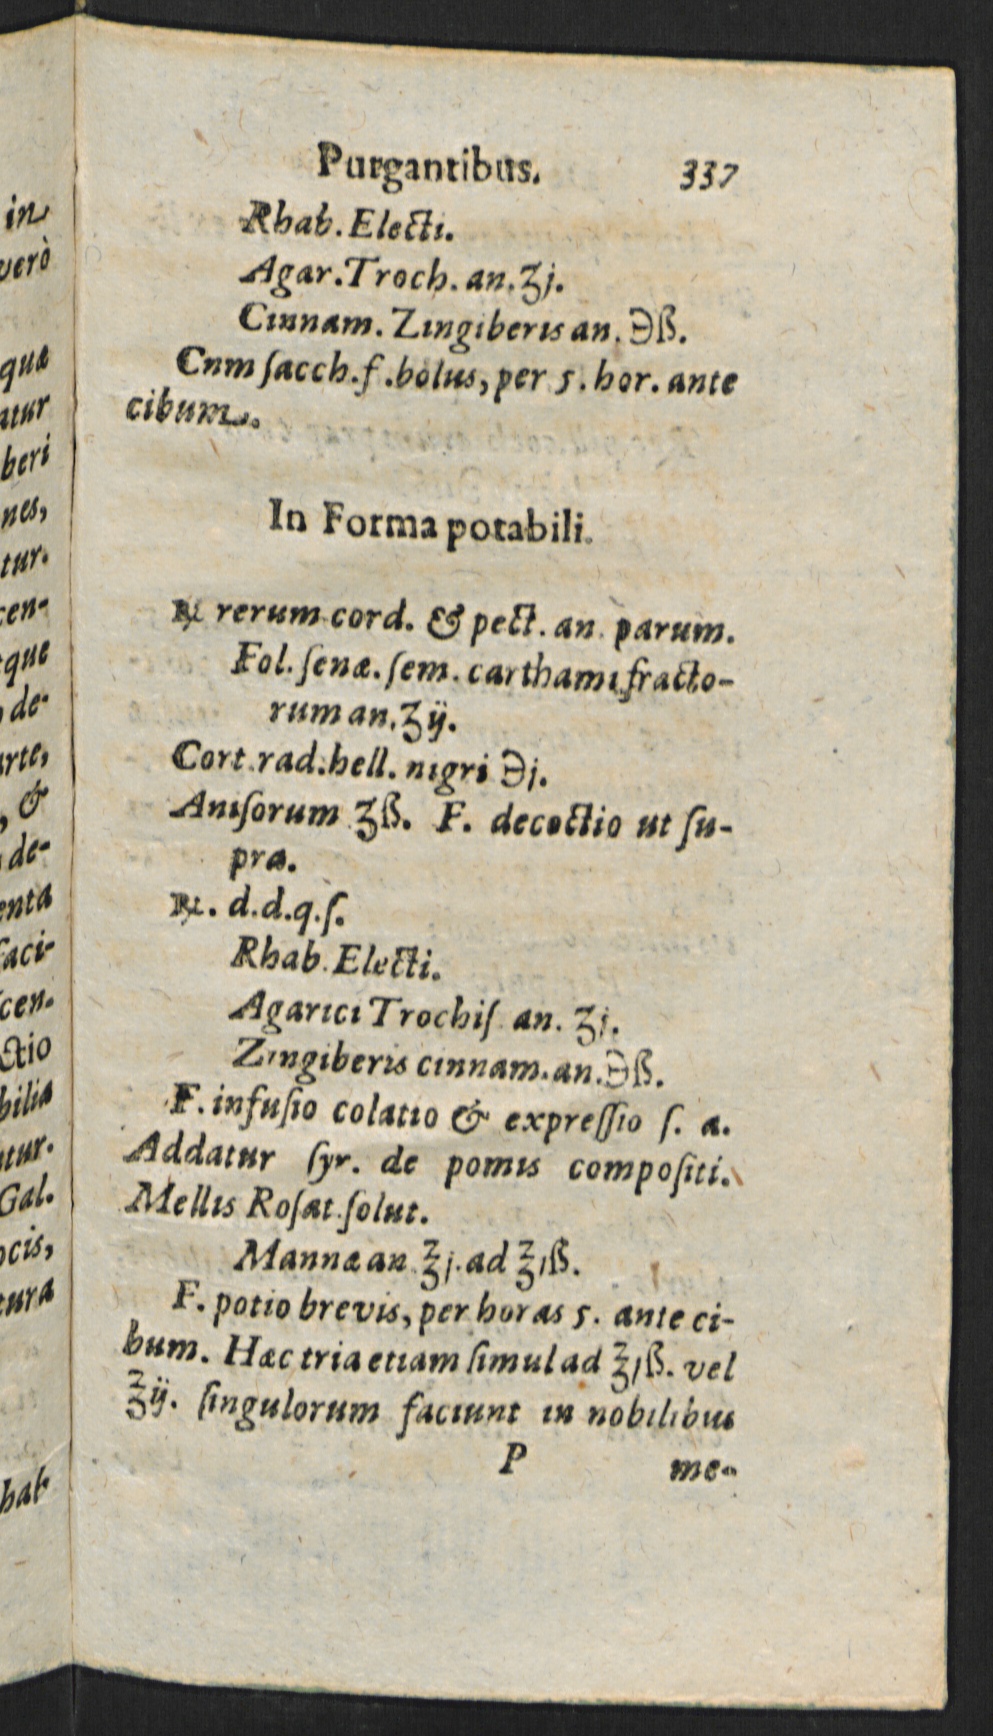 Purgantibus. 337
Rhab. Electi.
Agar. Troch. an. ʒj.
Cinnam. Zingiberis an. ℈ß.
Cnm ſacch. f. bolus, per 5. hor. ante
cibum.
In Forma potabili.
℞ rerum cord. & pect. an. parum.
Fol. ſenæ. ſem. carthami fracto-
rum an. ʒij.
Cort. rad. hell. nigri ℈j.
Aniſorum ʒß. F. decoctio ut ſu-
pra.
℞. d.d.q.ſ.
Rhab. Electi.
Agarici Trochiſ. an. ʒj.
Zingiberis cinnam. an. ℈ß.
F. infuſio colatio & expreſſio ſ. a.
Addatur ſyr. de pomis compoſiti.
Mellis Roſat. ſolut.
Mannæ an ℥j. ad ℥jß.
F. potio brevis, per horas 5. ante ci-
bum. Hæc tria etiam ſimul ad ℥jß. vel
℥ij. ſingulorum faciunt in nobilibus
P me-
in
verò
quæ
atur
beri
nes,
tur.
cen-
que
de-
arte,
, &
de-
enta
faci-
ſcen-
ctio
bilia
ntur.
Gal.
ocis,
tura
hab